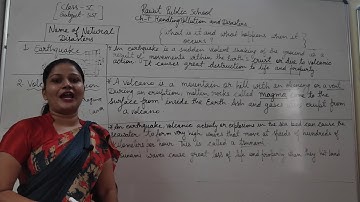 Class - V
Subject - SST
Rawat Public School
Ch-7 Handling Pollution and Disasters
Name of Natural Disasters
What is it and what happens when it occurs
1. Earthquake
* An earthquake is a sudden violent shaking of the ground as a
result of movements within the Earth's crust or due to volcanic
action. It causes great destruction to life and property
2. Vol
* A volcano is a mountain or hill with an opening or a vent.
During an eruption, molten rocks called Magma to the
surface from inside the Earth. Ash and gases also erupt from
a volcano
* An earthquake, volcanic activity or explosions in the sea bed can cause the
seawater to form very high waves that move at speeds of hundreds of
kilometers an hour. This is called a Tsunami
Tsunami waves cause great loss of life and property when they hit land